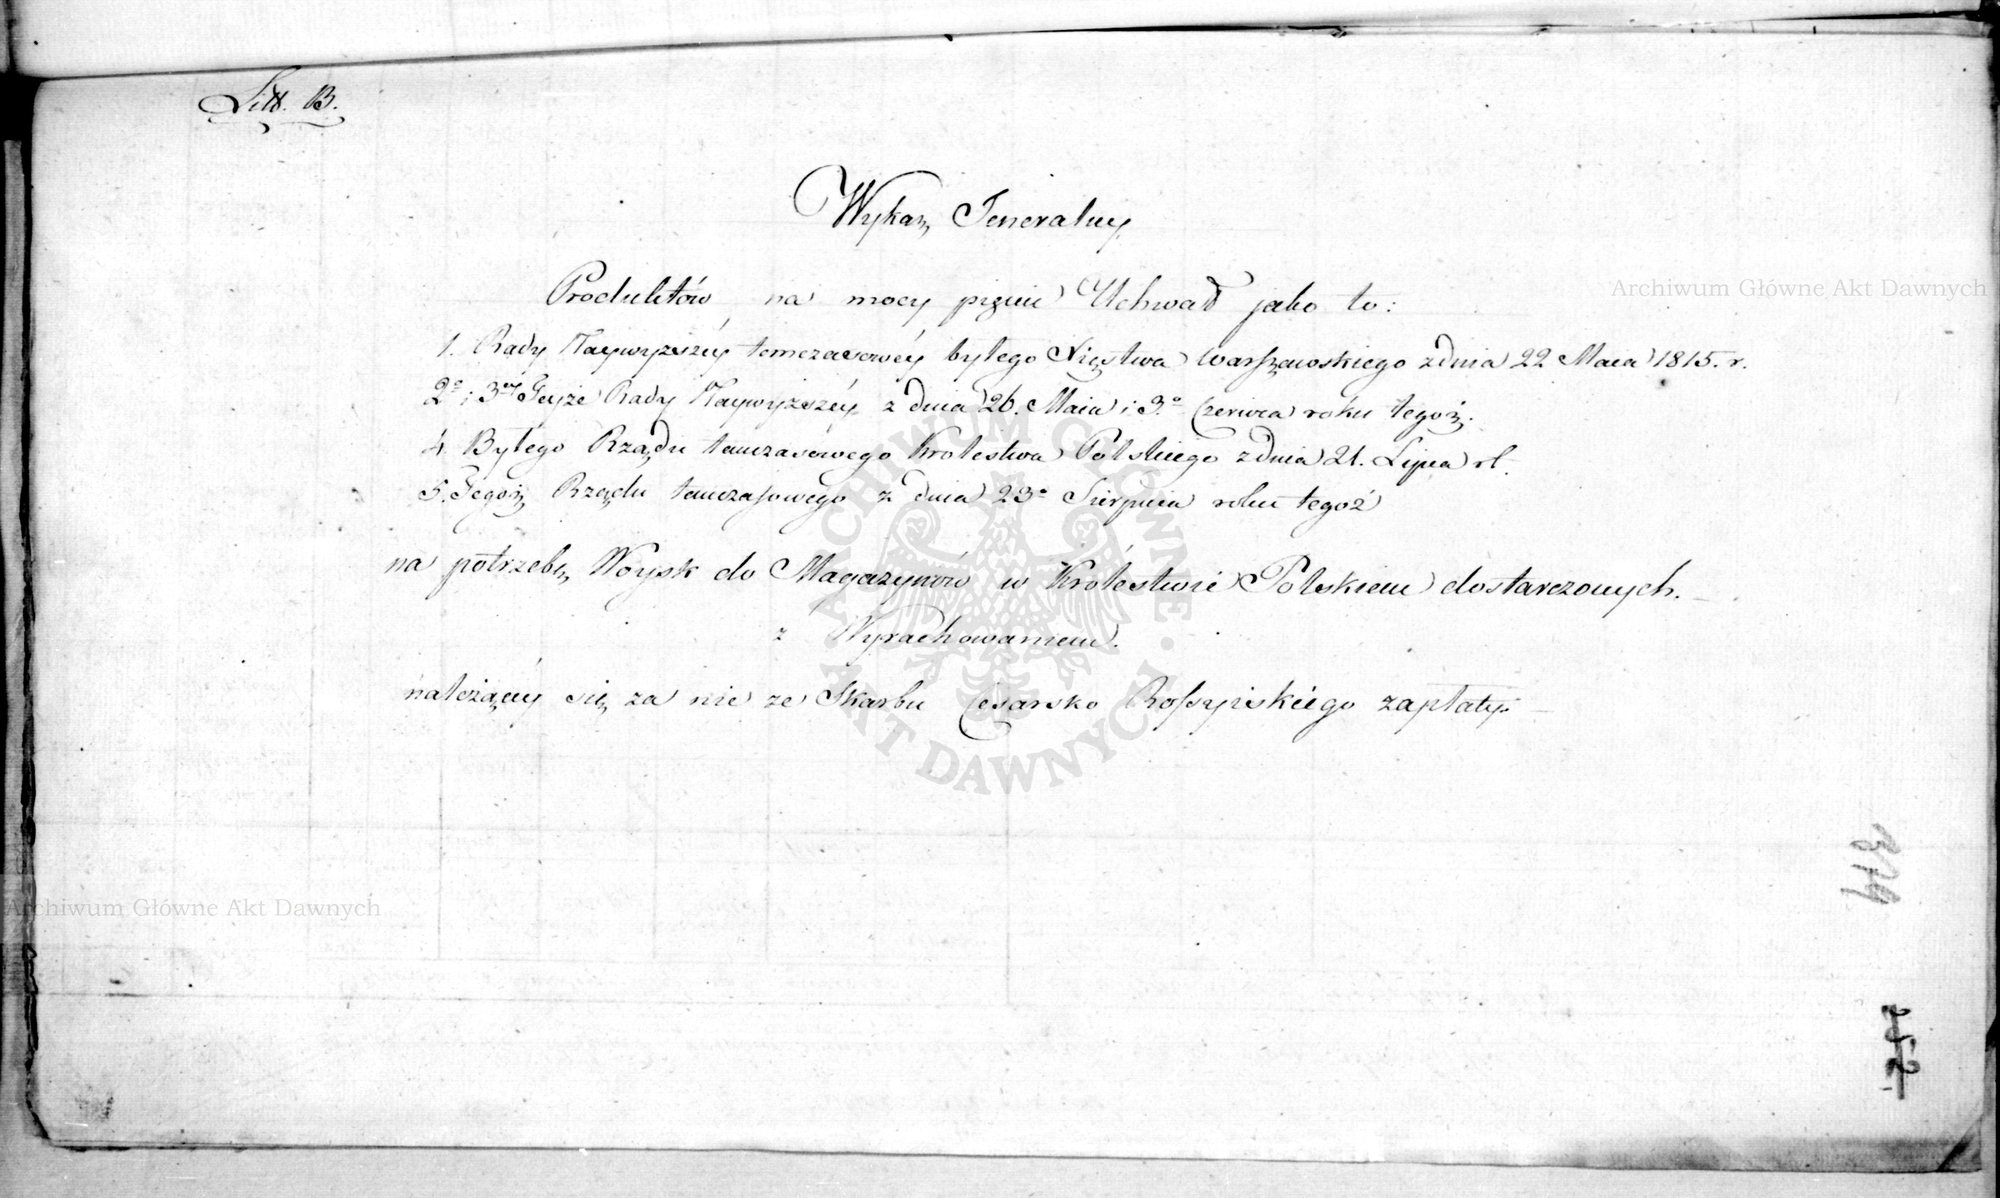 Litt. B.
Wykaz Generalny
Produktów na mocy pięciu Uchwał jako to:
1. Rady Naywyższéy tomczasowéy byłego Xięstwa Warszawskiego z dnia 22 Maia 1815. r.
2º i 3ey Teyże Rady Naywyższéy z dnia 26. Maia i 3.º Czerwca roku tegoż.
4. Byłego Rządu tomczasowego Krolestwa Polskiego z dnia 21. Lipca rt.
5. Tegoż Rządu tomczasowego z dnia 23º Sierpnia roku tegoż
na potrzebę Woysk do Magazynów w Królestwie Polskiem dostarczonych.
z Wyrachowaniem.
należącéy się za nie ze Skarbu Cesarsko Rossyiskiego zapłaty.
314
252
Archiwum Główne Akt Dawnych
Archiwum Główne Akt Dawnych
ARCHIWUM GŁÓWNE AKT DAWNYCH